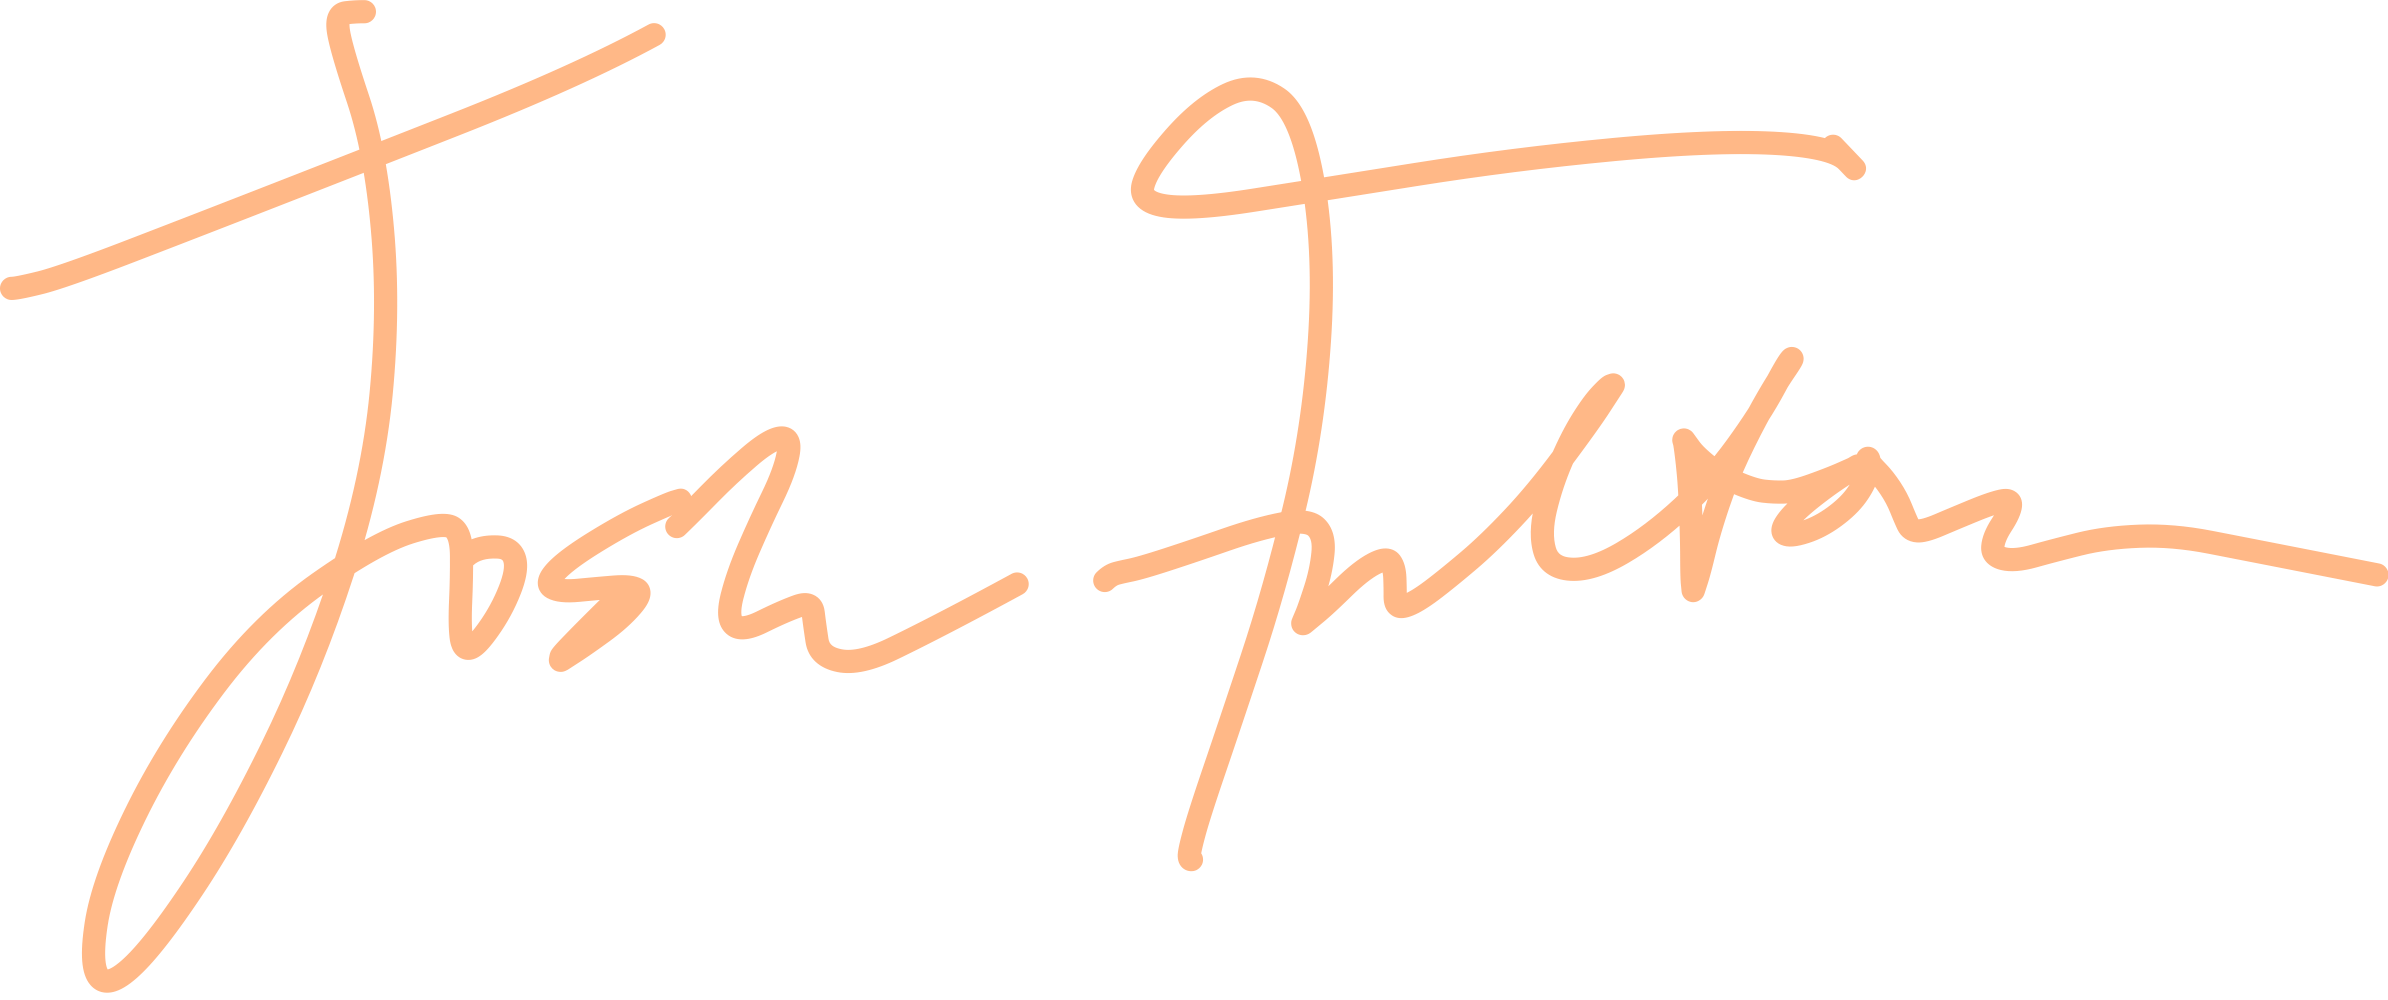 Josh Fulton